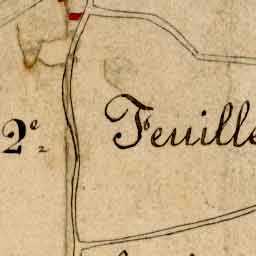 2e Feuille